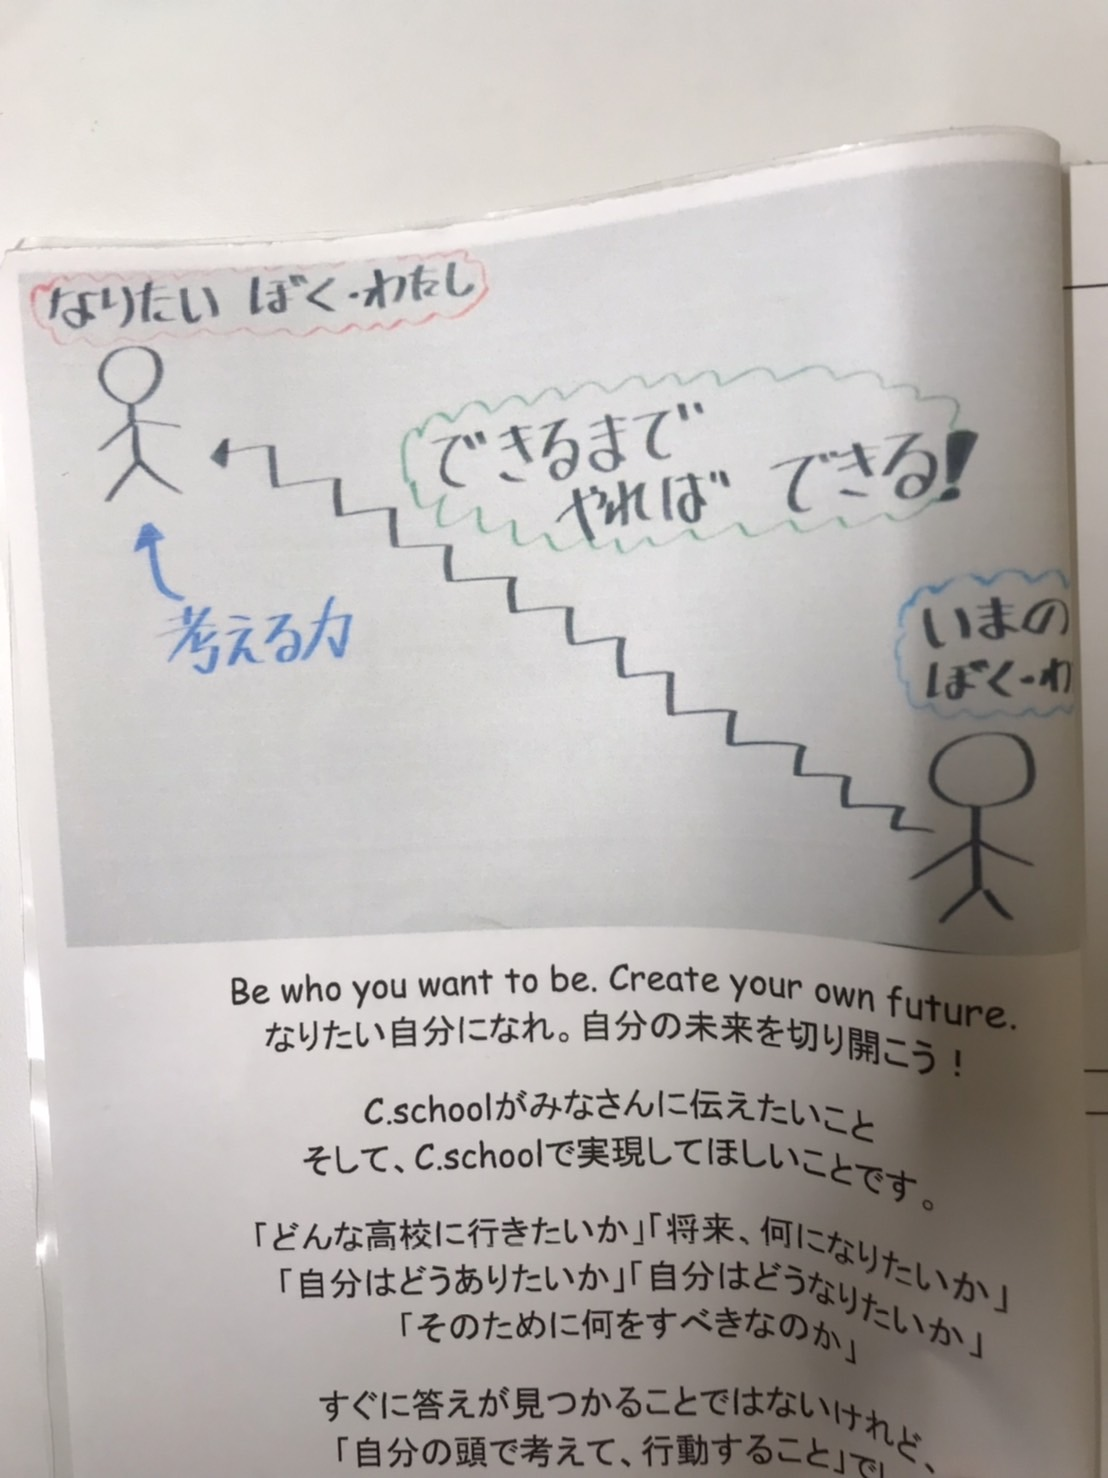 なりたい ぼく・わたし
できるまで
やればできる!
考える力
いまの
ぼく・わ
Be who you want to be. Create your own future.
なりたい自分になれ。自分の未来を切り開こう！
C.schoolがみなさんに伝えたいこと
そして、C.schoolで実現してほしいことです。
「どんな高校に行きたいか」「将来、何になりたいか」
「自分はどうありたいか」「自分はどうなりたいか」
「そのために何をすべきなのか」
すぐに答えが見つかることではないけれど、
「自分の頭で考えて、行動すること」で